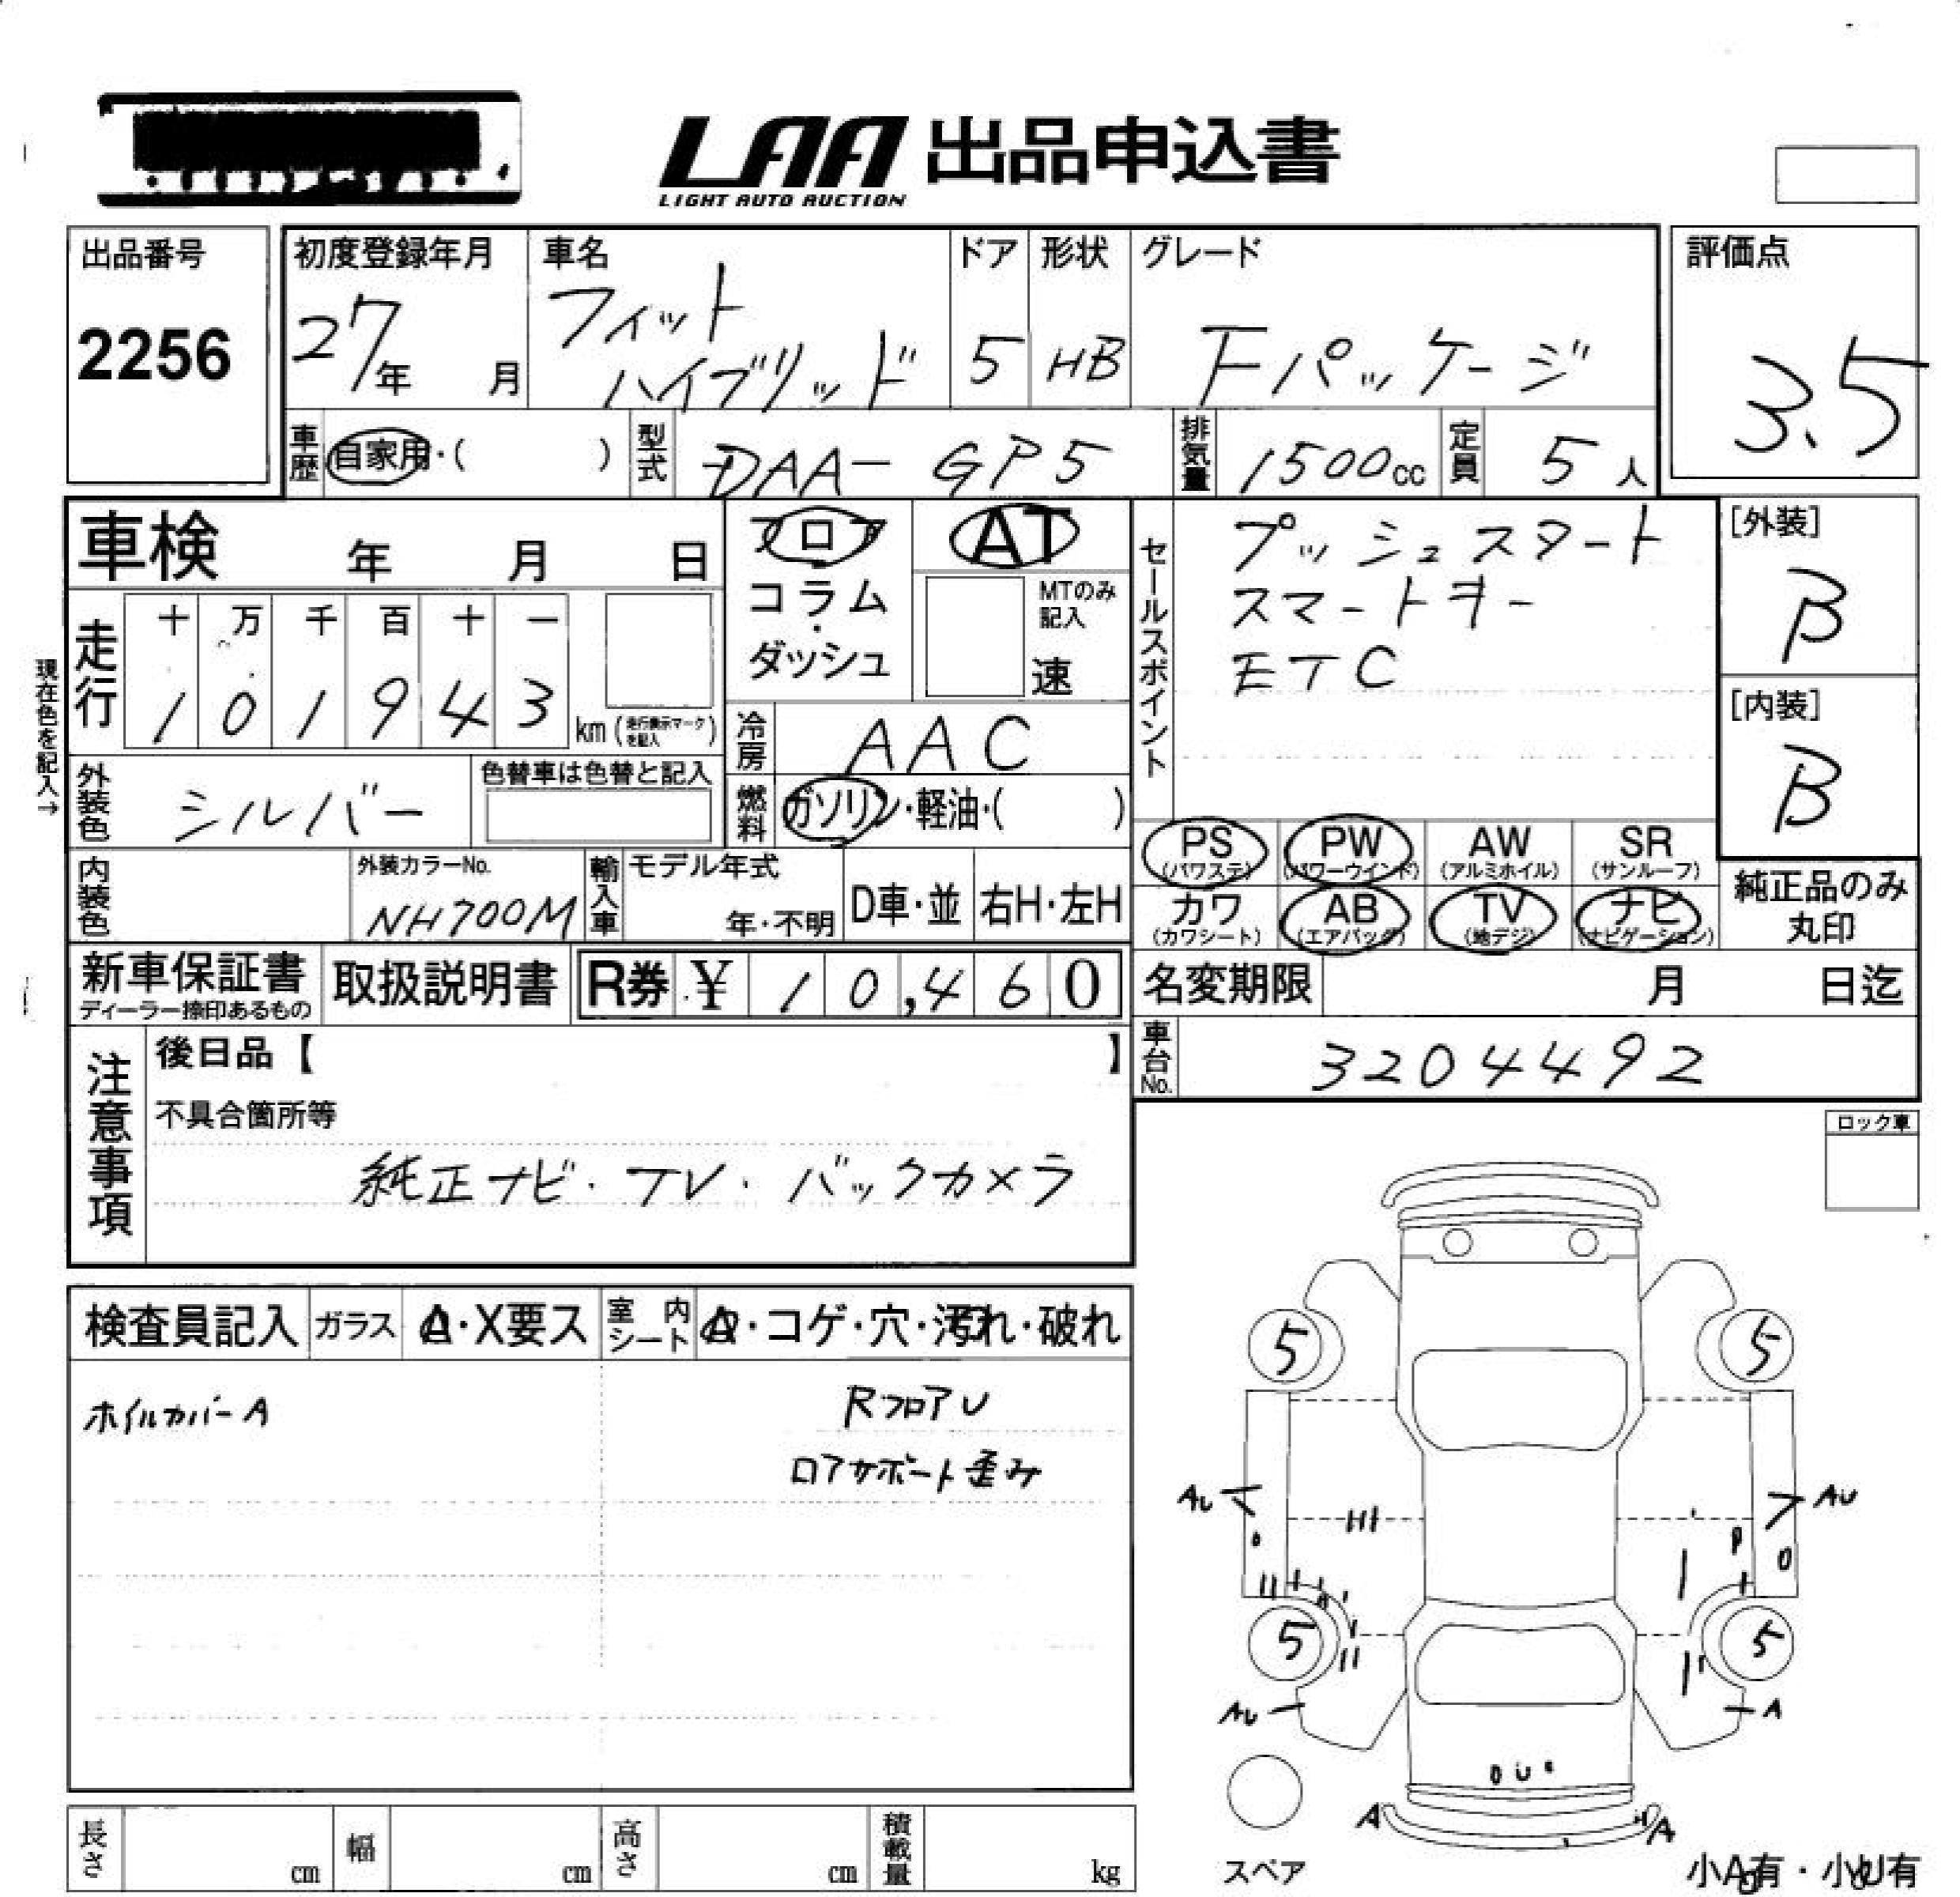 LAA 出品申込書
LIGHT AUTO AUCTION
出品番号
2256
初度登録年月
27年 月
車名
フィット
ハイブリッド
ドア
5
形状
HB
グレード
Fパッケージ
評価点
3.5
車歴
自家用・( )
型式
DAA-GP5
排気量
1500cc
定員
5人
車検 年 月 日
フロア
コラム
・
ダッシュ
AT
MTのみ
記入
速
セールスポイント
プッシュスタート
スマートキー
ETC
[外装]
B
[内装]
B
現在色を記入→
走行
十 万 千 百 十 一
1 0 1 9 4 3 km (走行表示マークを記入)
冷房
AAC
外装色
シルバー
色替車は色替と記入
燃料
ガソリン・軽油・( )
PS
(パワステ)
PW
(パワーウインド)
AW
(アルミホイル)
SR
(サンルーフ)
カワ
(カワシート)
AB
(エアバッグ)
TV
(地デジ)
ナビ
(ナビゲーション)
純正品のみ
丸印
内装色
外装カラーNo.
NH700M
輸入車
モデル年式
年・不明
D車・並
右H・左H
新車保証書
ディーラー捺印あるもの
取扱説明書
R券 ¥ 10,460
名変期限 月 日迄
車台No.
3204492
注意事項
後日品【 】
不具合箇所等
純正ナビ・TV・バックカメラ
ロック車
検査員記入
ガラス
A・X要ス
室内シート
A・コゲ・穴・汚れ・破れ
ホイルカバーA
RフロアU
ロアサポート歪み
5
5
AU
AU
5
5
AU
A
A
A
スペア
小A有・小U有
長さ cm
幅 cm
高さ cm
積載量 kg